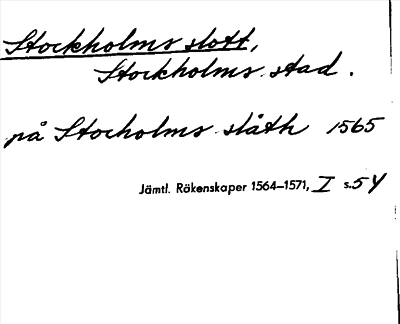 Stockholms slott,
Stockholms stad.
på Stocholms slåth 1565
Jämtl. Räkenskaper 1564–1571, I s.54